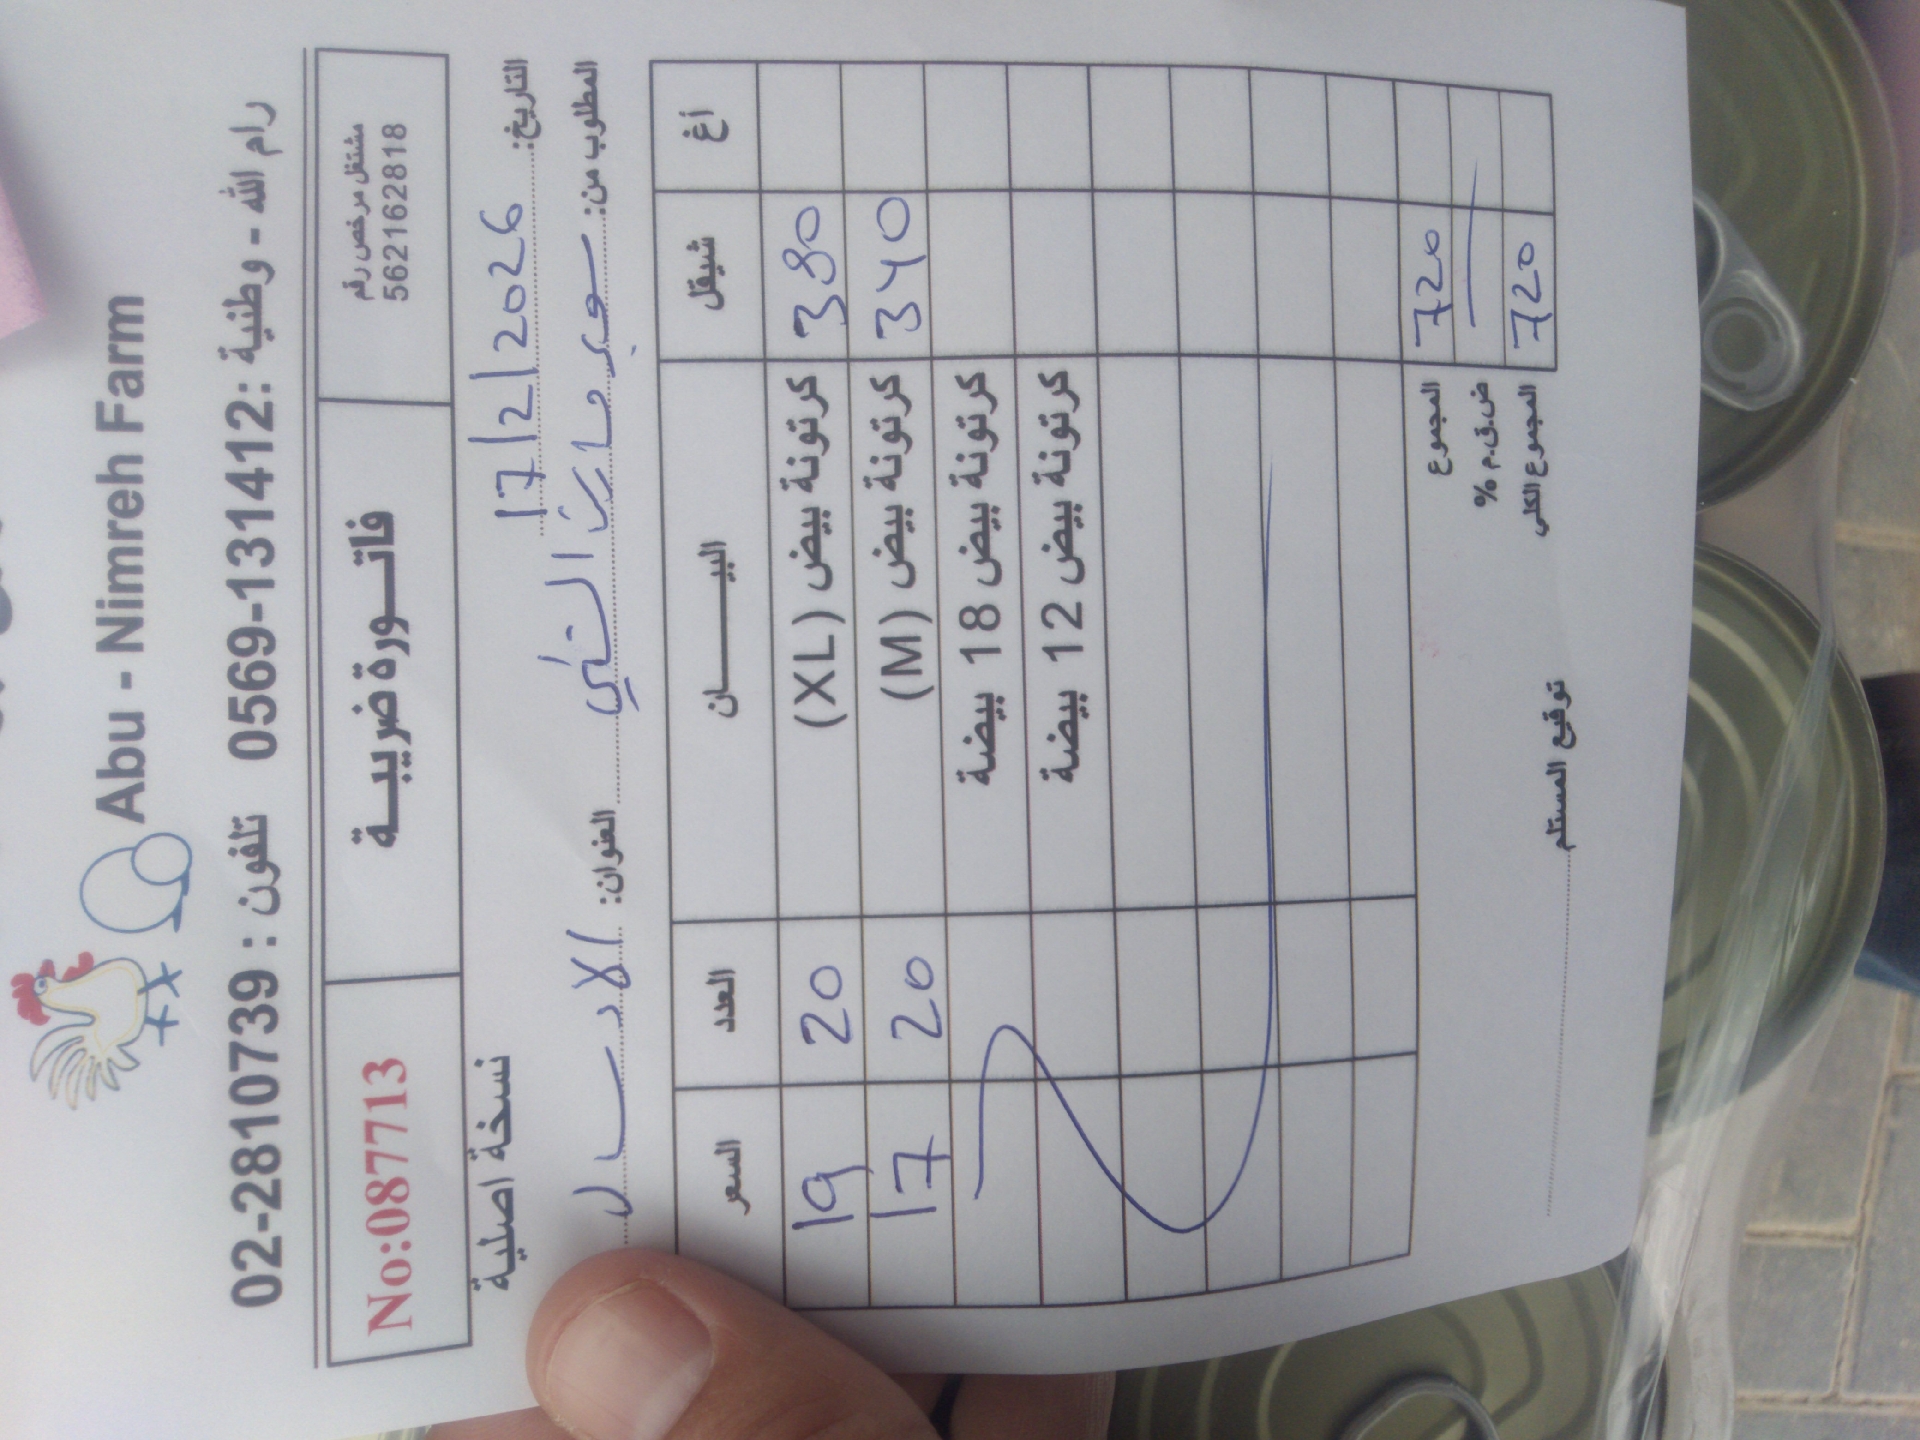 Abu - Nimreh Farm
رام الله - وطنية: 0569-131412 تلفون : 02-2810739
مشتغل مرخص رقم
562162818
فاتورة ضريبية
No:087713
التاريخ: 17/2/2026
نسخة اصلية
المطلوب من: سوبر ماركت العنوان: الارسال
أغ شيقل البيان العدد السعر
380 كرتونة بيض (XL) 20 19
340 كرتونة بيض (M) 20 17
كرتونة بيض 18 بيضة
كرتونة بيض 12 بيضة
720 المجموع
ض.ق.م %
720 المجموع الكلي
توقيع المستلم